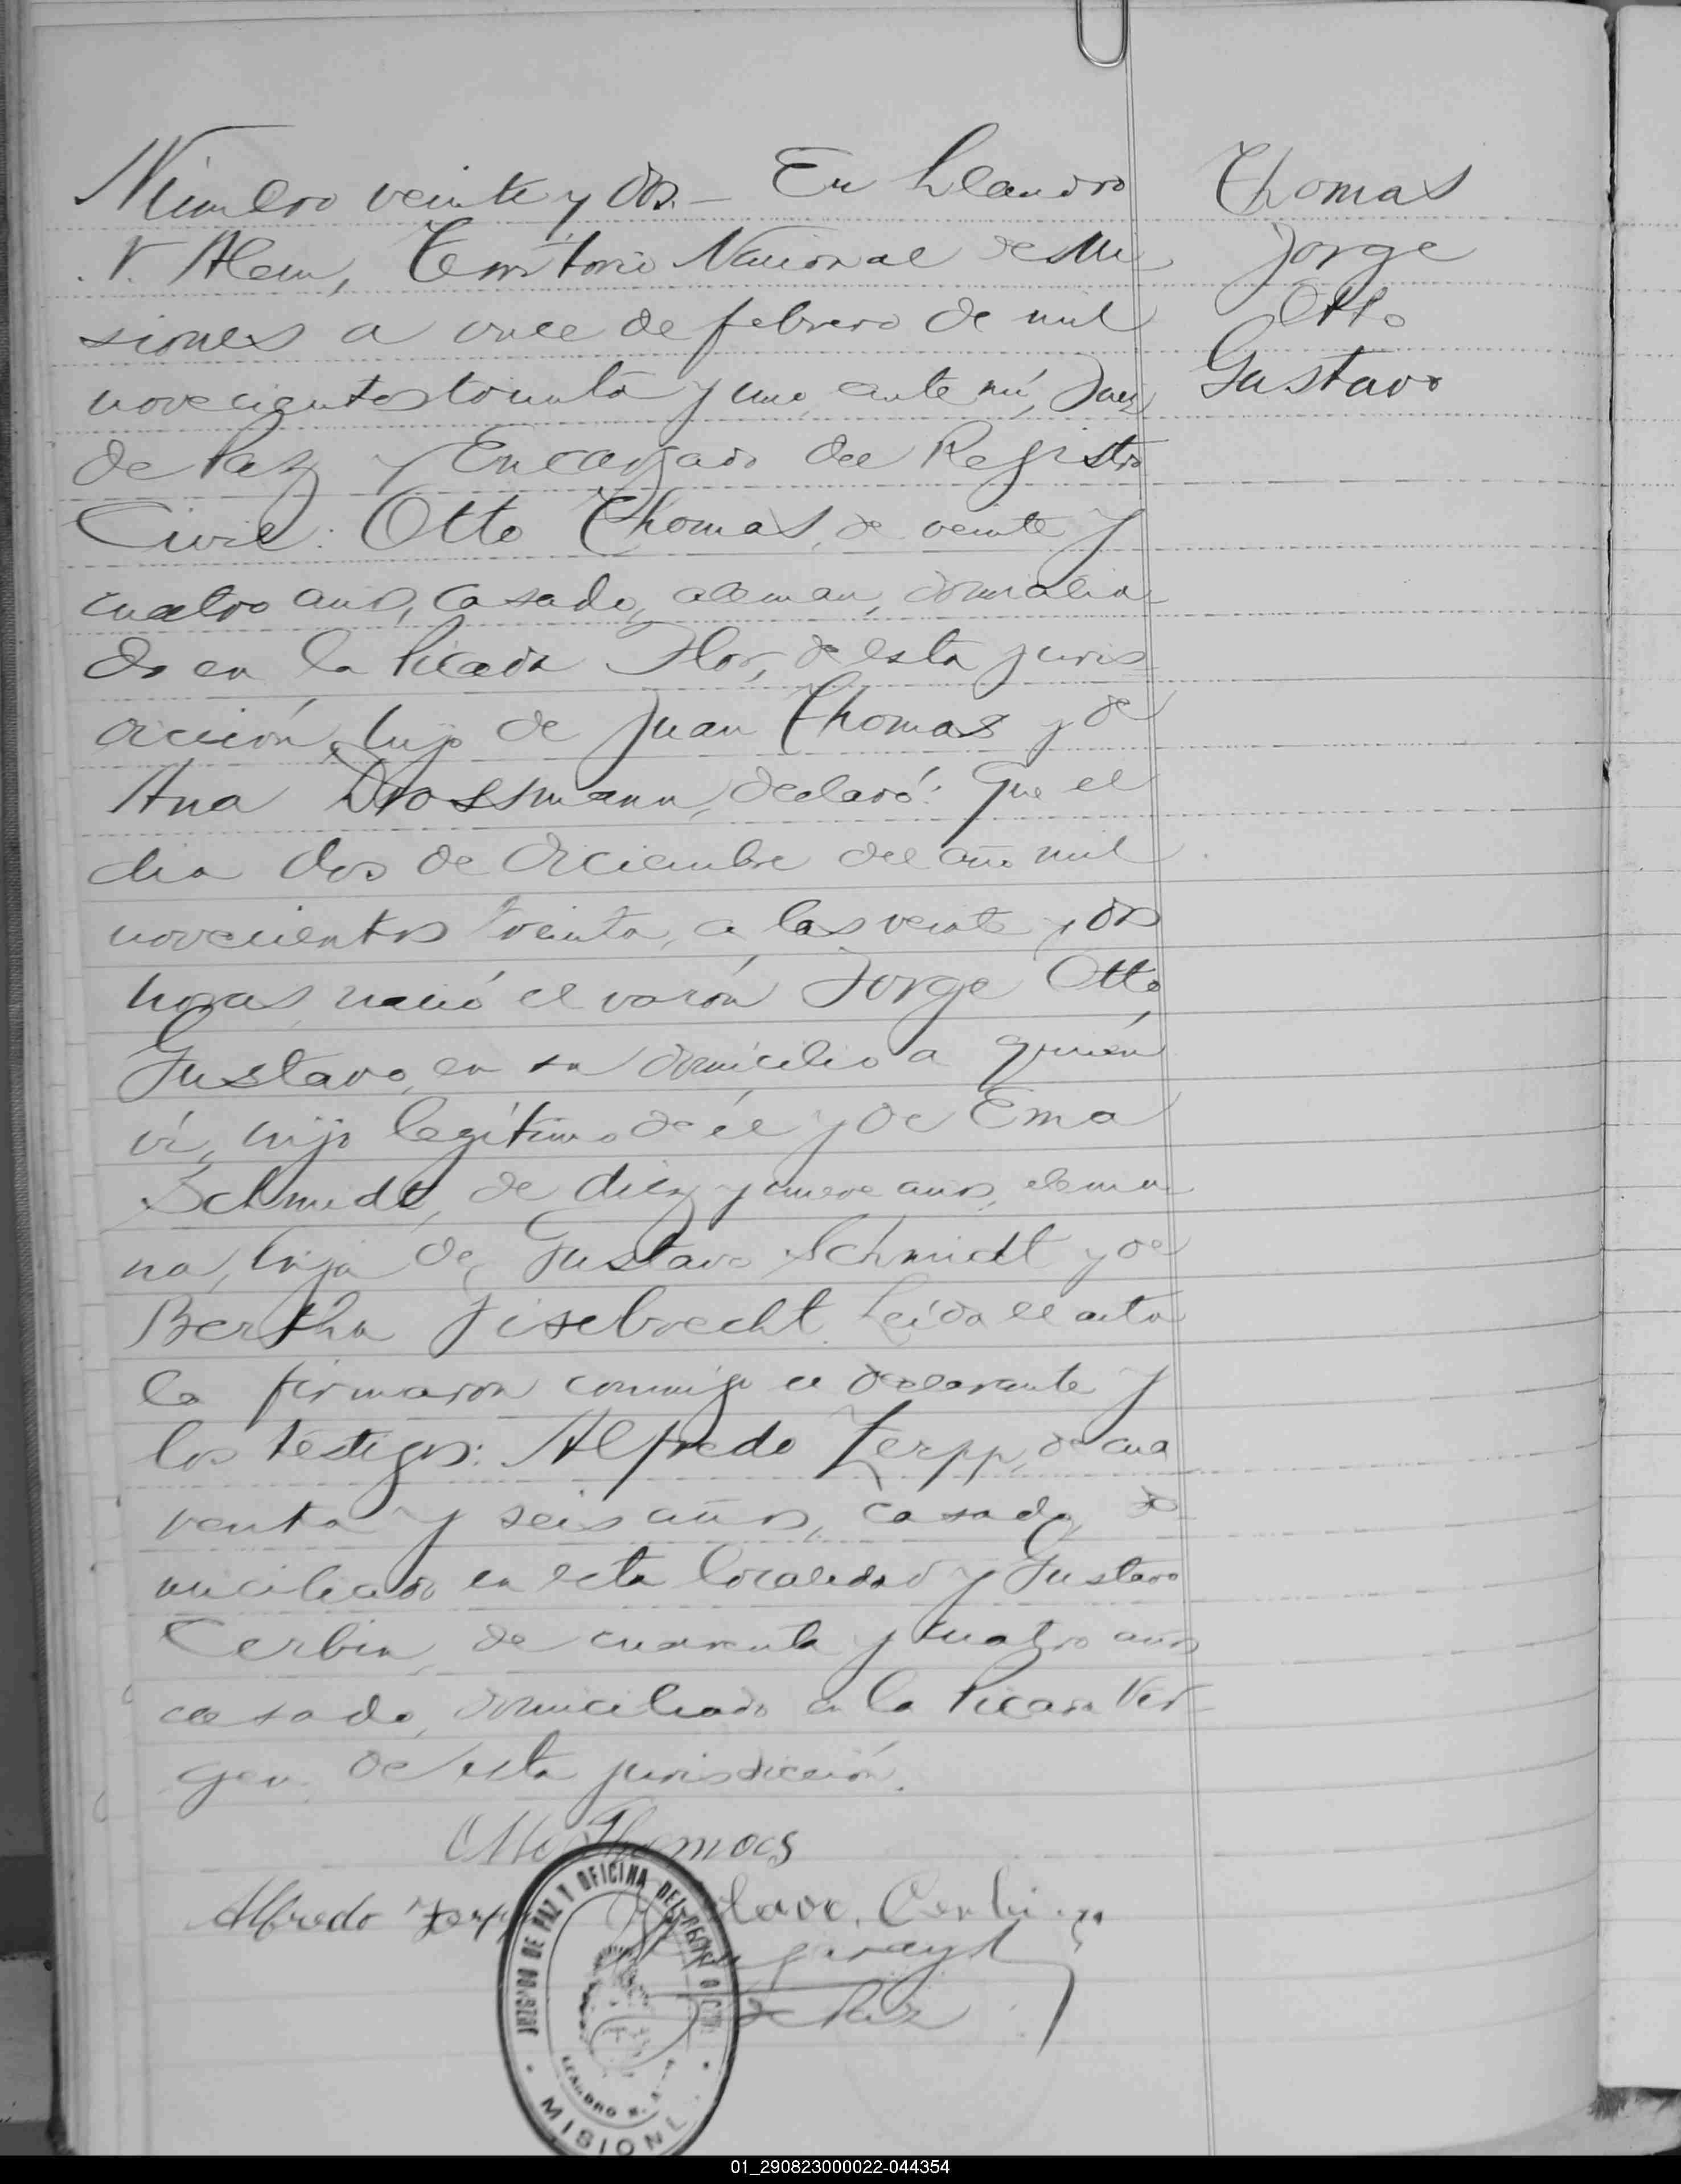 Número veinte y dos.- En Leandro
N. Alem, Territorio Nacional de Mi
siones a once de febrero de mil
novecientos treinta y uno, ante mí, Juez
de Paz y Encargado del Registro
Civil: Otto Thomas, de veinte y
cuatro años, casado, aleman, domicilia
do en la Picada Flor, de esta juris
dicción, hijo de Juan Thomas y de
Ana Drossmann, declaró: Que el
dia dos de diciembre del año mil
novecientos treinta, a las veinte y dos
horas, nació el varón Jorge Otto
Gustavo, en su domicilio a quién
ví, hijo legítimo de él y de Ema
Schmidt, de diez y nueve años, alema
na, hija de Gustavo Schmidt y de
Bertha Fisebrecht. Leída el acta
la firmaron conmigo el declarante y
los testigos: Alfredo Zerpp, de cua
renta y seis años, casado, do
miciliado en esta localidad y Gustavo
Cerbin, de cuarenta y cuatro años
casado, domiciliado en la Picada Vir
gen de esta jurisdicción.
Thomas
Jorge
Otto
Gustavo
Otto Thomas
Alfredo Zerpp
Gustavo Cerbin
de Paz
JUZGADO DE PAZ Y OFICINA DEL REGISTRO CIVIL
LEANDRO N.
MISIONE
01_290823000022-044354